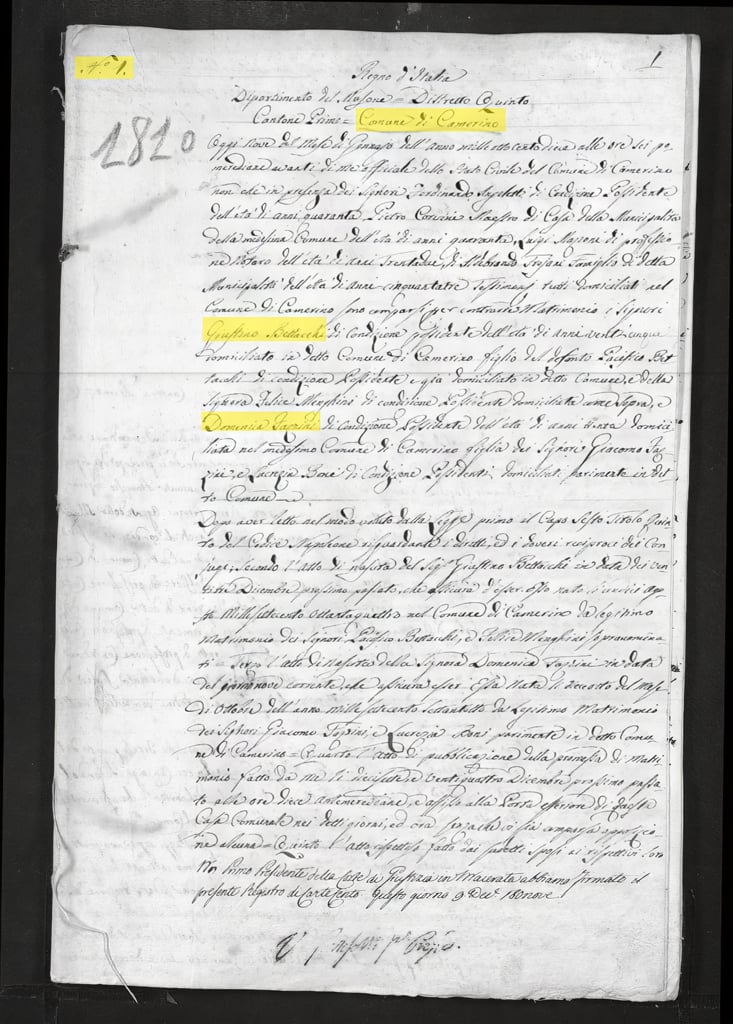 N.° 1.
1
Regno d'Italia
Dipartimento del Musone = Distretto Quinto
Cantone Primo = Comune di Camerino
1810
Oggi nove del Mese di Gennajo dell'anno mille ottocento dieci alle ore sei po
meridiane avanti di me officiale dello Stato Civile del Comune di Camerino
non che in presenza dei Signori Ferdinando di Condizione Possidente
dell'età di anni quaranta Pietro Maestro di Casa della Municipalità
della medesima Comune dell'età di anni quaranta, Luigi di professio
ne Notaro dell'età di anni Trentadue, Famiglio di detta
Municipalità dell'età di anni cinquantatre testimonj tutti domiciliati nel
Comune di Camerino sono comparsi per contrarre Matrimonio i Signori
Giustino Bettacchi di condizione possidente dell'età di anni venticinque
domiciliato in detto Comune di Camerino figlio del defonto Pacifico Bet
tacchi di condizione Possidente e già domiciliato in detto Comune, e della
Signora Felice Marghini di condizione Possidente domiciliata come sopra, e
Domenica di condizione Possidente dell'età di anni trenta domici
liata nel medesimo Comune di Camerino figlia dei Signori Giacomo
e Lucrezia Boni di Condizione Possidenti, domiciliati parimente in det
to Comune
Dopo aver letto nel modo voluto dalla Legge primo il Capo Sesto Titolo Quin
to del Codice Napoleone risguardante i diritti, ed i doveri reciproci dei Con
jugi, Secondo l'atto di nascita del Sig.r Giustino Bettacchi in data dei ven
titre Dicembre prossimo passato, che assicura d'esser Esso nato li undici Ago
sto Millesettecento Ottantaquattro nel Comune di Camerino da legitimo
Matrimonio dei Signori Pacifico Bettacchi, e Felice Marghini sopranomina
ti = Terzo l'atto di Nascita della Signora Domenica in data
del giorno nove corrente, che assicura esser Essa Nata li dieciotto del Mese
di Ottobre dell'anno mille settecento settantotto da Legitimo Matrimonio
dei Signori Giacomo e Lucrezia Boni parimente in detto Comu
ne di Camerino = Quarto l'atto di pubblicazione della promessa di Matri
monio fatto da me li diecisette, e ventiquattro Dicembre prossimo passa
to alle ore dieci antemeridiane, e affisso alla Porta esteriore di questa
Casa Comunale nei detti giorni, ed ora senza che vi sia comparsa opposizio
ne alcuna = Quinto l'atto rispettoso fatto dai sudetti Sposi ai rispettivi loro
Noi Primo Presidente della Corte di Giustizia in Macerata abbiamo firmato il
presente Registro di Carte Cento Questo giorno 9 Dec.e 180nove